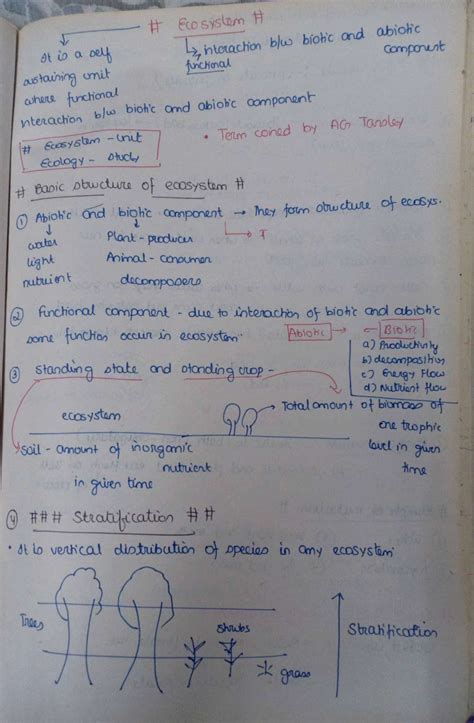 # Ecosystem #
It is a self
sustaining unit
where functional
interaction b/w biotic and abiotic component
interaction b/w biotic and abiotic
functional
component
# Ecosystem - unit
Ecology - study
• Term coined by AG Tansley
# Basic structure of ecosystem #
① Abiotic and biotic component → They form structure of ecosys.
water
light
nutrient
Plant - producer
Animal - consumer
decomposers
② Functional component - due to interaction of biotic and abiotic
some function occur in ecosystem.
Abiotic → ← Biotic
a) Productivity
b) decomposition
c) Energy Flow
d) Nutrient flow
③ Standing state and standing crop -
ecosystem
Total amount of biomass of
one trophic
level in given
time
Soil - amount of inorganic
nutrient
in given time
④ ### Stratification ##
• It is vertical distribution of species in any ecosystem
Trees
Shrubs
grass
Stratification